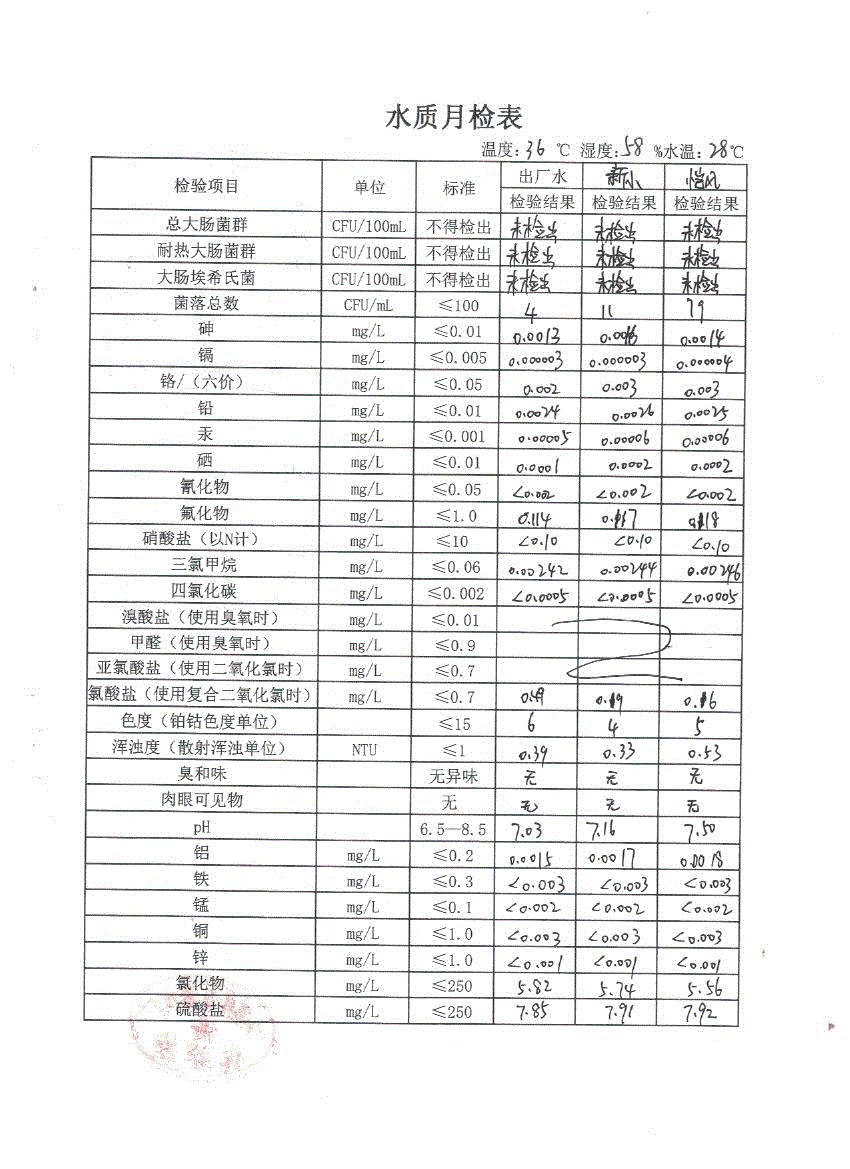 水质月检表
温度：36 ℃ 湿度：58 %水温：28℃
检验项目 单位 标准 出厂水 新小 恺风
检验结果 检验结果 检验结果
总大肠菌群 CFU/100mL 不得检出 未检出 未检出 未检出
耐热大肠菌群 CFU/100mL 不得检出 未检出 未检出 未检出
大肠埃希氏菌 CFU/100mL 不得检出 未检出 未检出 未检出
菌落总数 CFU/mL ≤100 4 11 79
砷 mg/L ≤0.01 0.0013 0.0016 0.0014
镉 mg/L ≤0.005 0.000003 0.000003 0.000004
铬/（六价） mg/L ≤0.05 0.002 0.003 0.003
铅 mg/L ≤0.01 0.0024 0.0026 0.0025
汞 mg/L ≤0.001 0.00005 0.00006 0.00006
硒 mg/L ≤0.01 0.0001 0.0002 0.0002
氰化物 mg/L ≤0.05 <0.002 <0.002 <0.002
氟化物 mg/L ≤1.0 0.114 0.117 0.118
硝酸盐（以N计） mg/L ≤10 <0.10 <0.10 <0.10
三氯甲烷 mg/L ≤0.06 0.00242 0.00244 0.00246
四氯化碳 mg/L ≤0.002 <0.0005 <0.0005 <0.0005
溴酸盐（使用臭氧时） mg/L ≤0.01
甲醛（使用臭氧时） mg/L ≤0.9
亚氯酸盐（使用二氧化氯时） mg/L ≤0.7
氯酸盐（使用复合二氧化氯时） mg/L ≤0.7 0.49 0.19 0.16
色度（铂钴色度单位） ≤15 6 4 5
浑浊度（散射浑浊单位） NTU ≤1 0.39 0.33 0.53
臭和味 无异味 无 无 无
肉眼可见物 无 无 无 无
pH 6.5—8.5 7.03 7.16 7.50
铝 mg/L ≤0.2 0.0015 0.0017 0.0018
铁 mg/L ≤0.3 <0.003 <0.003 <0.003
锰 mg/L ≤0.1 <0.002 <0.002 <0.002
铜 mg/L ≤1.0 <0.003 <0.003 <0.003
锌 mg/L ≤1.0 <0.001 <0.001 <0.001
氯化物 mg/L ≤250 5.82 5.74 5.56
硫酸盐 mg/L ≤250 7.85 7.91 7.92